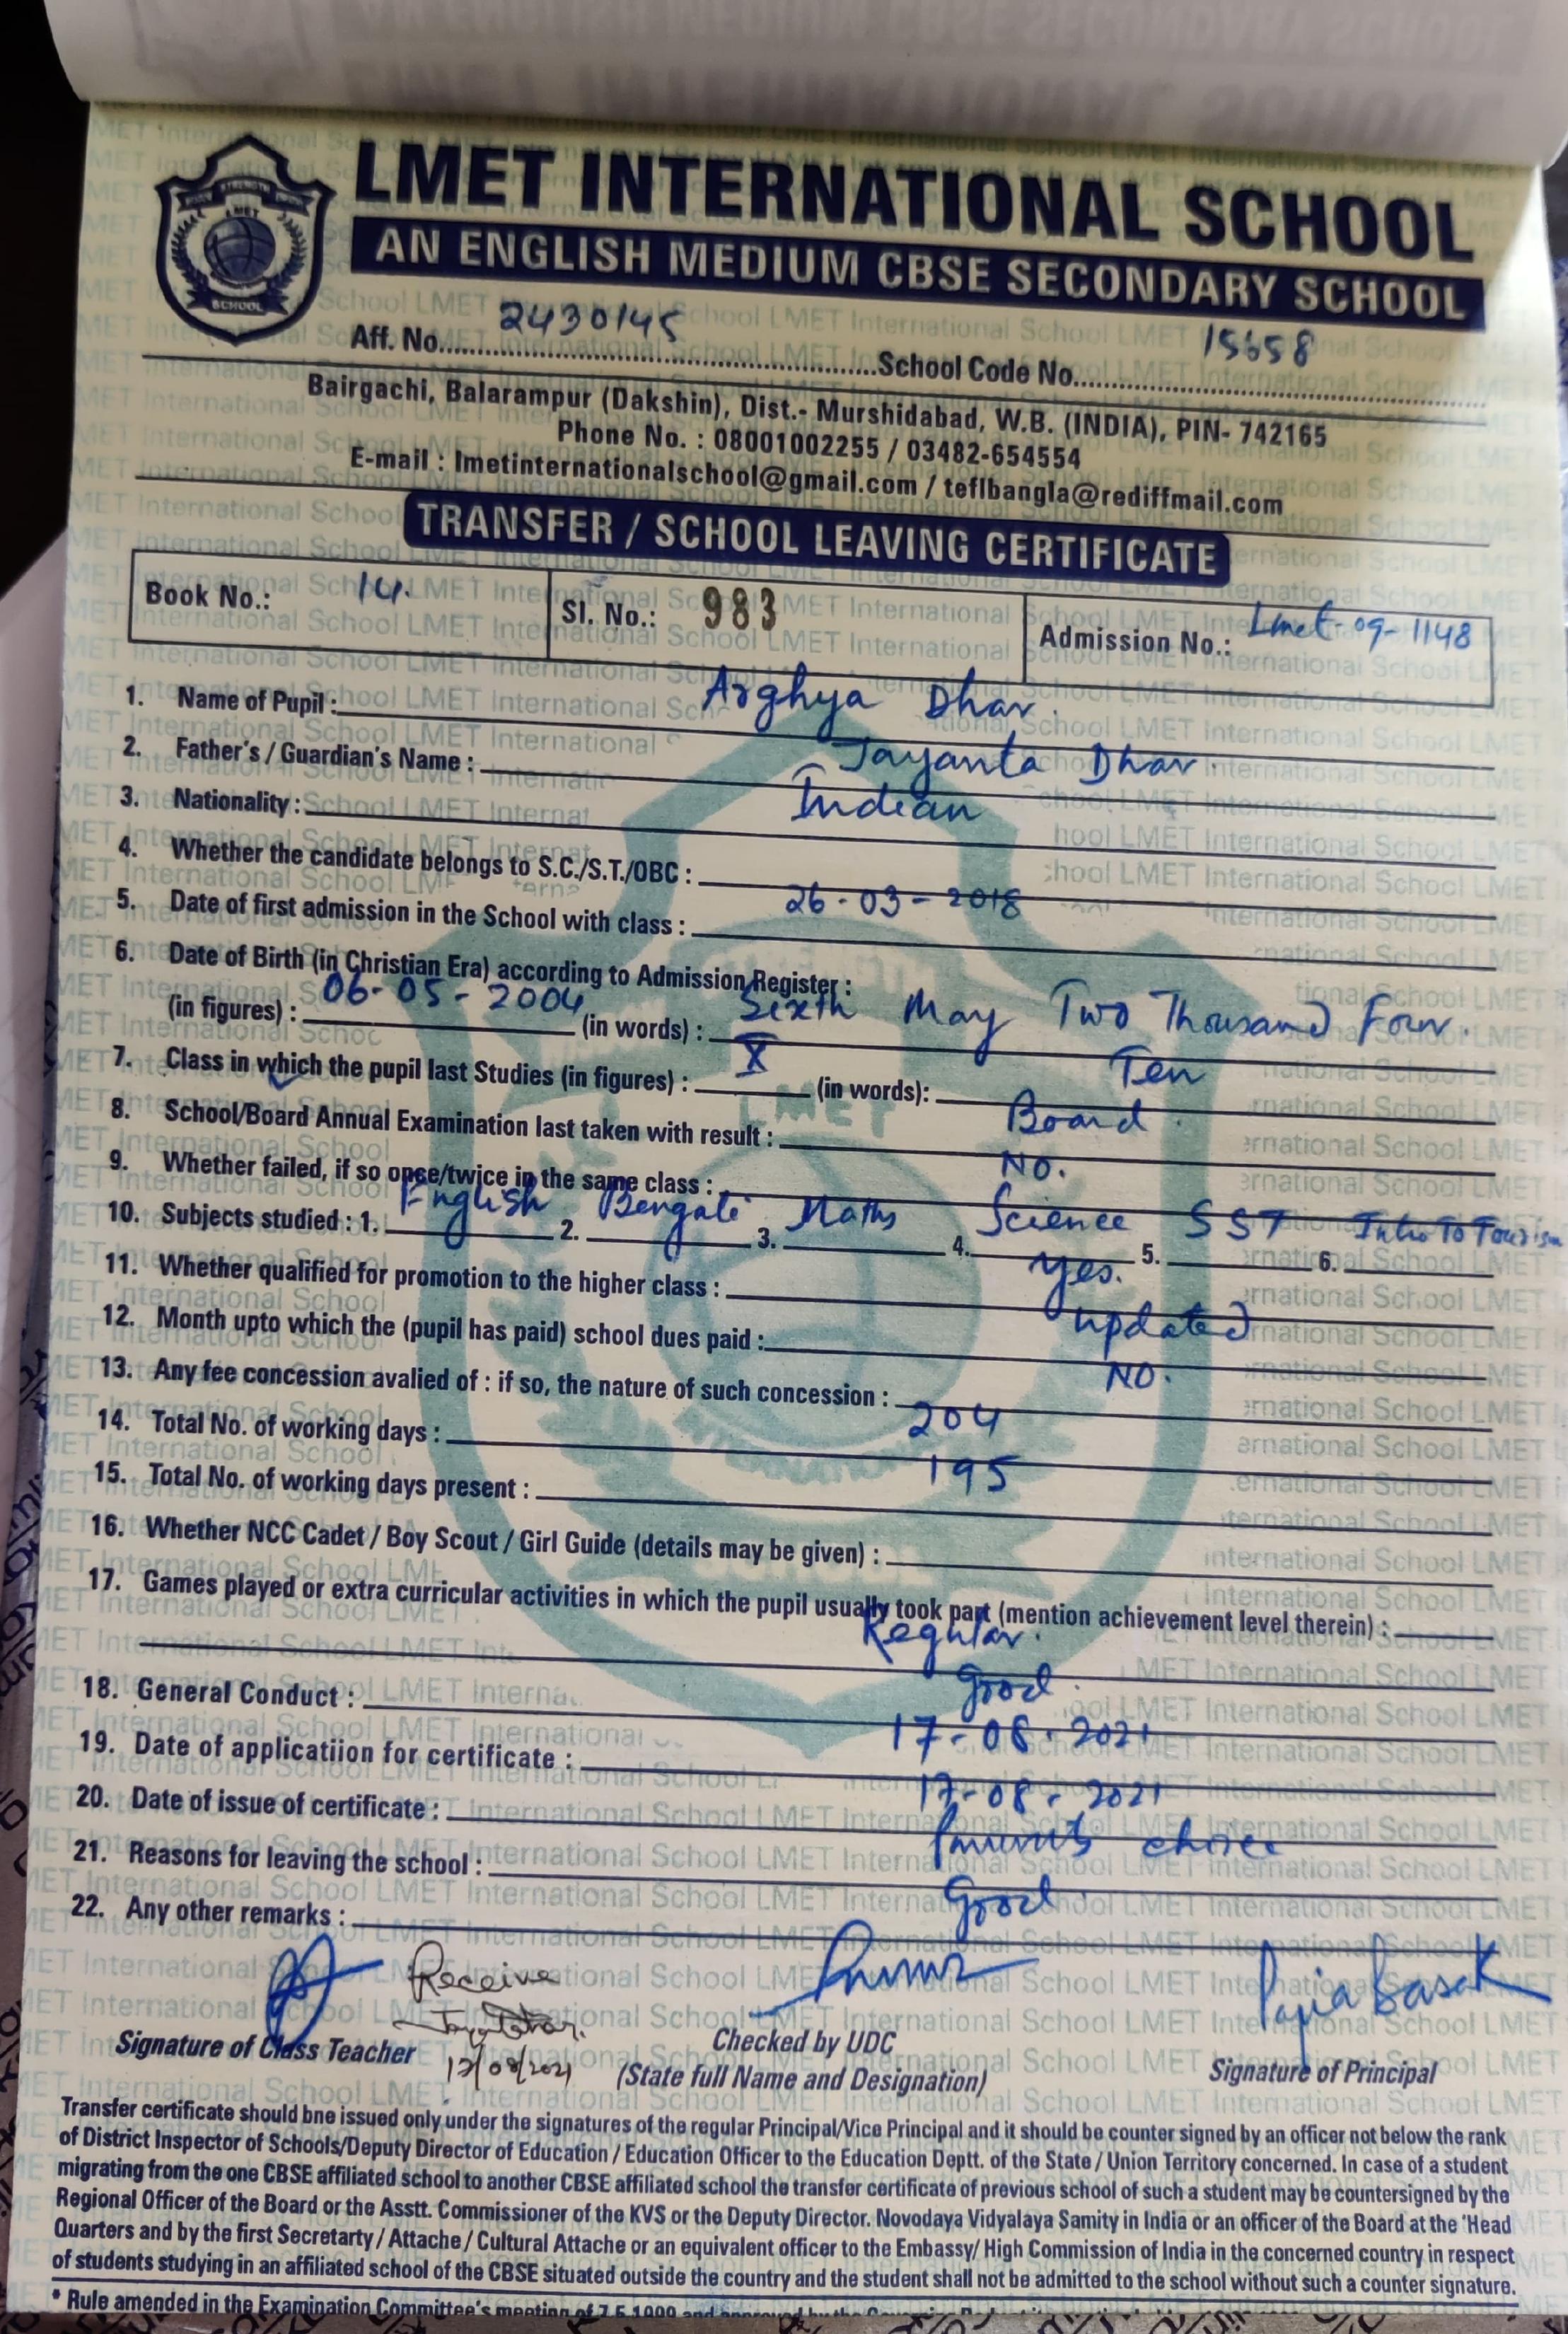 LMET INTERNATIONAL SCHOOL
AN ENGLISH MEDIUM CBSE SECONDARY SCHOOL
Aff. No. 2430145 School Code No. 15658
Bairgachi, Balarampur (Dakshin), Dist.- Murshidabad, W.B. (INDIA), PIN- 742165
Phone No. : 08001002255 / 03482-654554
E-mail : lmetinternationalschool@gmail.com / teflbangla@rediffmail.com
TRANSFER / SCHOOL LEAVING CERTIFICATE
Book No.: 14. Sl. No.: 983 Admission No.: Lmet-09-1148
1. Name of Pupil : Arghya Dhar.
2. Father's / Guardian's Name : Jayanta Dhar.
3. Nationality : Indian
4. Whether the candidate belongs to S.C./S.T./OBC :
5. Date of first admission in the School with class : 26-03-2018
6. Date of Birth (in Christian Era) according to Admission Register :
(in figures) : 06-05-2004 (in words) : Sixth May Two Thousand Four.
7. Class in which the pupil last Studies (in figures) : X (in words): Ten
8. School/Board Annual Examination last taken with result : Board.
9. Whether failed, if so once/twice in the same class : NO.
10. Subjects studied : 1. English 2. Bengali 3. Maths 4. Science 5. SST 6. Intro To Tourism
11. Whether qualified for promotion to the higher class : Yes.
12. Month upto which the (pupil has paid) school dues paid : updated
13. Any fee concession avalied of : if so, the nature of such concession : NO.
14. Total No. of working days : 204
15. Total No. of working days present : 195
16. Whether NCC Cadet / Boy Scout / Girl Guide (details may be given) :
17. Games played or extra curricular activities in which the pupil usually took part (mention achievement level therein) :
Regular.
18. General Conduct : Good.
19. Date of applicatiion for certificate : 17-08-2021
20. Date of issue of certificate : 17-08-2021
21. Reasons for leaving the school : Parents choice
22. Any other remarks : Good.
Receive
Papia Basak
Signature of Class Teacher Checked by UDC Signature of Principal
17/08/2021 (State full Name and Designation)
Transfer certificate should bne issued only under the signatures of the regular Principal/Vice Principal and it should be counter signed by an officer not below the rank
of District Inspector of Schools/Deputy Director of Education / Education Officer to the Education Deptt. of the State / Union Territory concerned. In case of a student
migrating from the one CBSE affiliated school to another CBSE affiliated school the transfer certificate of previous school of such a student may be countersigned by the
Regional Officer of the Board or the Asstt. Commissioner of the KVS or the Deputy Director. Novodaya Vidyalaya Samity in India or an officer of the Board at the 'Head
Quarters and by the first Secretarty / Attache / Cultural Attache or an equivalent officer to the Embassy/ High Commission of India in the concerned country in respect
of students studying in an affiliated school of the CBSE situated outside the country and the student shall not be admitted to the school without such a counter signature.
* Rule amended in the Examination Committee's meeting of 7.5.1999 and approved by the